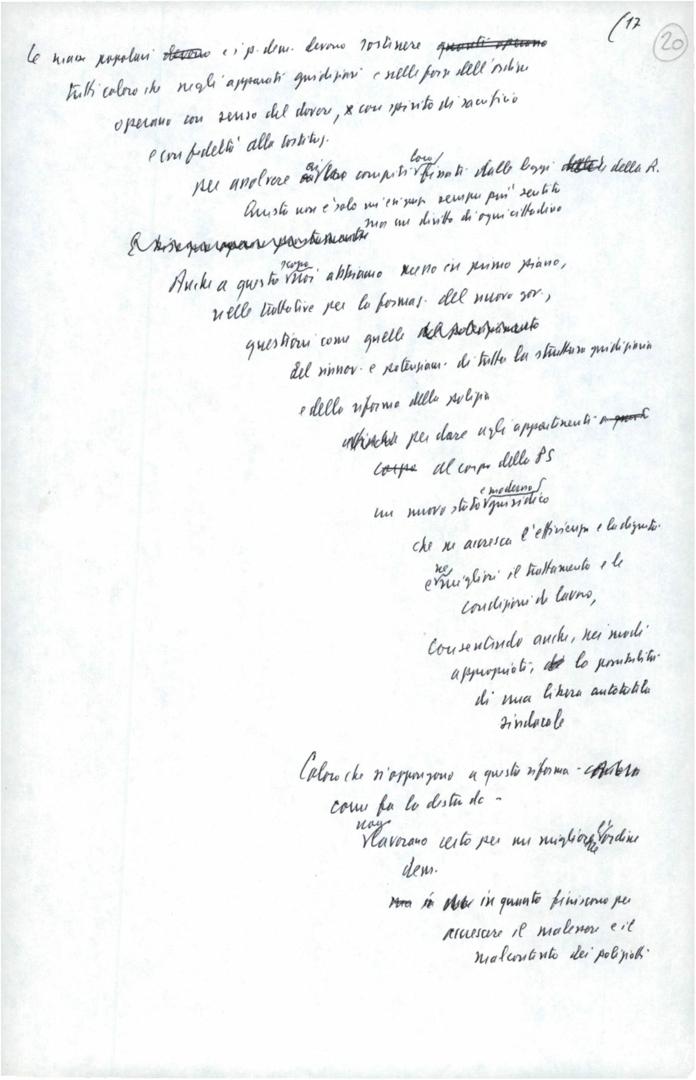 (17
20
Le masse popolari devono e i p. dem. devono sostenere quanti operano
tutti coloro che negli apparati giudiziari e nelle forze dell'ordine
operano con senso del dovere, e con spirito di sacrificio
e con fedeltà alla costituz.
per assolvere ai compiti loro fissati dalle leggi della R.
Questa non è solo un'esigenza sempre più sentita
ma un diritto di ogni cittadino
Anche a questo scopo noi abbiamo messo in primo piano,
nelle trattative per la formaz. del nuovo gov.,
questioni come quelle del potenziamento
del rinnov. e potenziam. di tutta la struttura giudiziaria
e della riforma della polizia
per dare agli appartenenti a
corpo al corpo della PS
un nuovo stato e moderno giuridico
che ne accresca l'efficienza e la dignità
e ne migliori il trattamento e le
condizioni di lavoro,
consentendo anche, nei modi
appropriati, la possibilità
di una libera autotutela
sindacale
Coloro che si oppongono a questa riforma -
come fa la destra dc -
non lavorano certo per un migliore l'ordine
dem.
in quanto finiscono per
accrescere il malessere e il
malcontento dei poliziotti